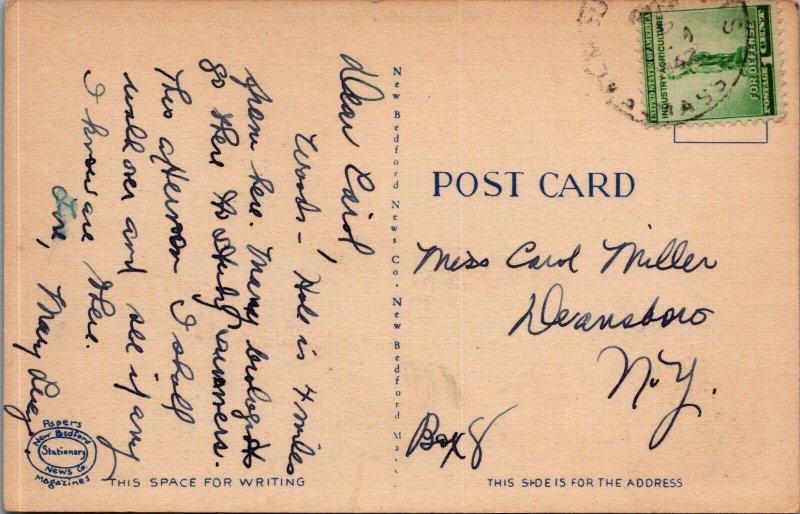 Dear Carol,
Woods-Hole is 4 miles
from here. Many biologists
go there to study summers.
This afternoon I shall
walk over and see if any
I know are there.
Love,
Mary
New Bedford News Co. · New Bedford Mass.
POST CARD
Miss Carol Miller
Deansboro
N.Y.
Box 8
UNITED STATES OF AMERICA
INDUSTRY·AGRICULTURE
FOR DEFENSE
POSTAGE 1 CENT
MASS
Papers
New Bedford
Stationery
News Co.
Magazines
THIS SPACE FOR WRITING
THIS SIDE IS FOR THE ADDRESS